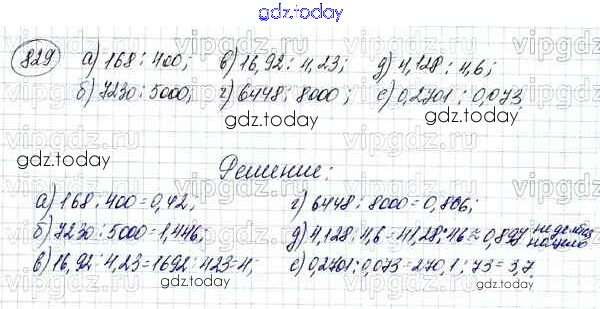 gdz.today
829 а) 168 : 400; в) 16,92 : 4,23; д) 4,128 : 4,6;
б) 7230 : 5000; г) 6448 : 8000; е) 0,2701 : 0,073
gdz.today gdz.today
gdz.today
Решение:
а) 168 : 400 = 0,42; г) 6448 : 8000 = 0,806;
б) 7230 : 5000 = 1,446; д) 4,128 : 4,6 = 41,28 : 46 ≈ 0,897 не делится нацело
в) 16,92 : 4,23 = 1692 : 423 = 4; е) 0,2701 : 0,073 = 270,1 : 73 = 3,7
gdz.today gdz.today